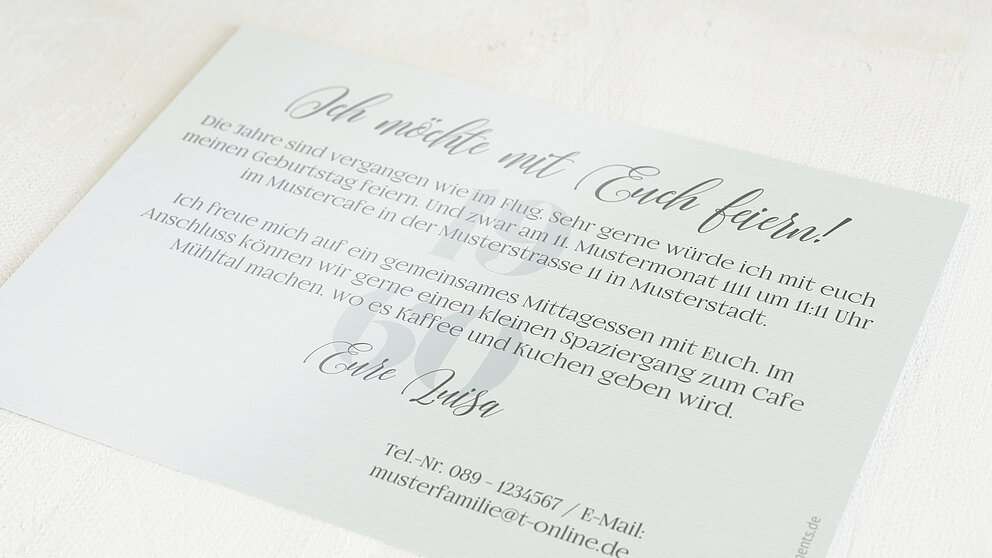 Ich möchte mit Euch feiern!
Die Jahre sind vergangen wie im Flug. Sehr gerne würde ich mit euch
meinen Geburtstag feiern. Und zwar am 11. Mustermonat 1111 um 11:11 Uhr
im Mustercafe in der Musterstrasse 11 in Musterstadt.
Ich freue mich auf ein gemeinsames Mittagessen mit Euch. Im
Anschluss können wir gerne einen kleinen Spaziergang zum Cafe
Mühltal machen, wo es Kaffee und Kuchen geben wird.
Eure Luisa
19
50
Tel.-Nr. 089 - 1234567 / E-Mail:
musterfamilie@t-online.de